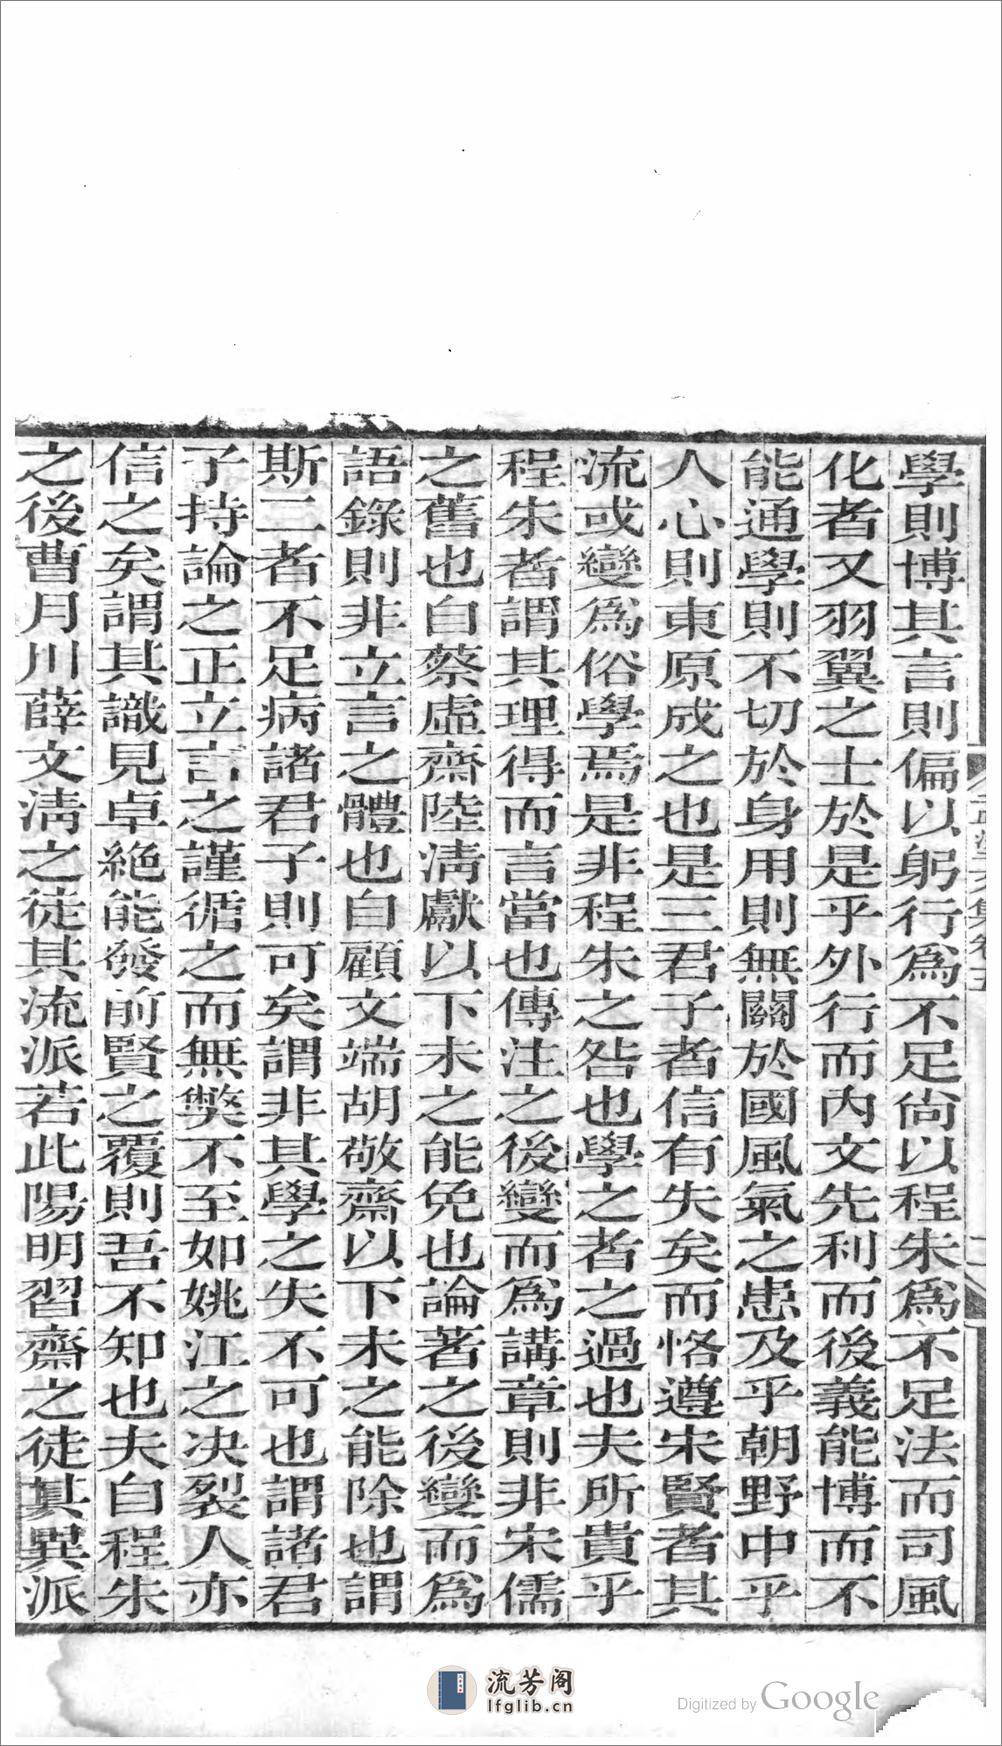 學則博其言則偏以躬行爲不足尙以程朱爲不足法而司風
化者又羽翼之士於是乎外行而內文先利而後義能博而不
能通學則不切於身用則無關於國風氣之患及乎朝野中乎
人心則東原成之也是三君子者信有失矣而恪遵宋賢者其
流或變爲俗學焉是非程朱之咎也學之者之過也夫所貴乎
程朱者謂其理得而言當也傳注之後變而爲講章則非宋儒
之舊也自蔡虛齋陸淸獻以下未之能免也論著之後變而爲
語錄則非立言之體也自顧文端胡敬齋以下未之能除也謂
斯二者不足病諸君子則可矣謂非其學之失不可也謂諸君
子持論之正立言之謹循之而無獘不至如姚江之决裂人亦
信之矣謂其識見卓絶能發前賢之覆則吾不知也夫自程朱
之後曹月川薛文淸之徒其流派若此陽明習齋之徒其異派
流芳阁
lfglib.cn
Digitized by Google